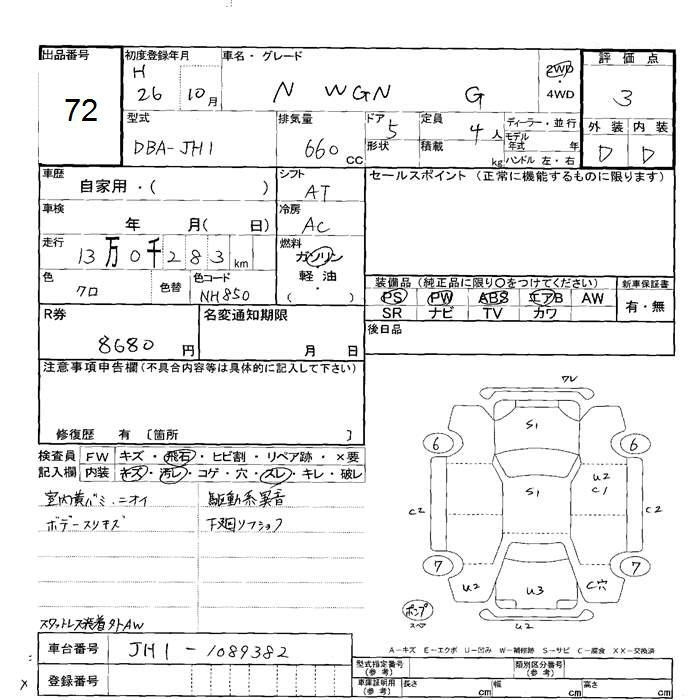 出品番号 初度登録年月 車名・グレード 評価点
72 H 26 10月 N WGN G 2WD ・ 4WD 3
型式 排気量 ドア 定員 ディーラー・並行 外装 内装
DBA-JH1 660 CC 5 4人 モデル年式 年 D D
形状 積載 kg ハンドル 左・右
車歴 シフト セールスポイント (正常に機能するものに限ります)
自家用・( ) AT
車検 冷房
年 月( 日) AC
走行 燃料
13万0千283km ガソリン
軽油
・
( )
色 色替 色コード 装備品 (純正品に限り○をつけてください) 新車保証書
クロ NH850 PS PW ABS エアB AW 有・無
SR ナビ TV カワ
R券 名変通知期限 後日品
8680円 月 日
注意事項申告欄(不具合内容等は具体的に記入して下さい)
修復歴 有 〔箇所 〕
検査員 FW キズ・飛石・ヒビ割・リペア跡・×要
記入欄 内装 キズ・汚レ・コゲ・穴・スレ・キレ・破レ
室内黄バミ、ニオイ 駆動系異音
ボデースリキズ 下廻リフショク
外AW
ワレ
S1
6 6
U2
C1
S1
C2 C2
7 7
U2 U3 C穴
ポンプ
スペア
U2
A-キズ E-エクボ U-凹み W-補修跡 S-サビ C-腐食 XX-交換済
車台番号 JH1-1089382
型式指定番号(参考) 類別区分番号(参考)
x 登録番号
車庫証明用(参考) 長さ cm 幅 cm 高さ cm